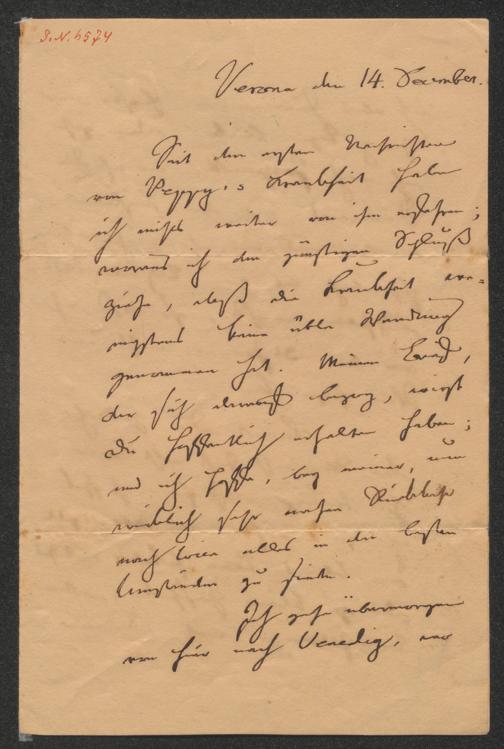 I.N. 6574
Verona den 14. December.
Seit den ersten Nachrichten
von Peppy's Krankheit habe
ich nichts weiter von ihm erfahren;
woraus ich den günstigen Schluß
ziehe, daß die Krankheit we-
nigstens keine üble Wendung
genommen hat. Meinen Brief,
der sich darauf bezog, wirst
Du hoffentlich erhalten haben;
und ich hoffe, bey meiner, nun
wirklich sehr nahen Rückkehr
nach Wien alles in den besten
Umständen zu finden.
Ich gehe übermorgen
von hier nach Venedig, wo